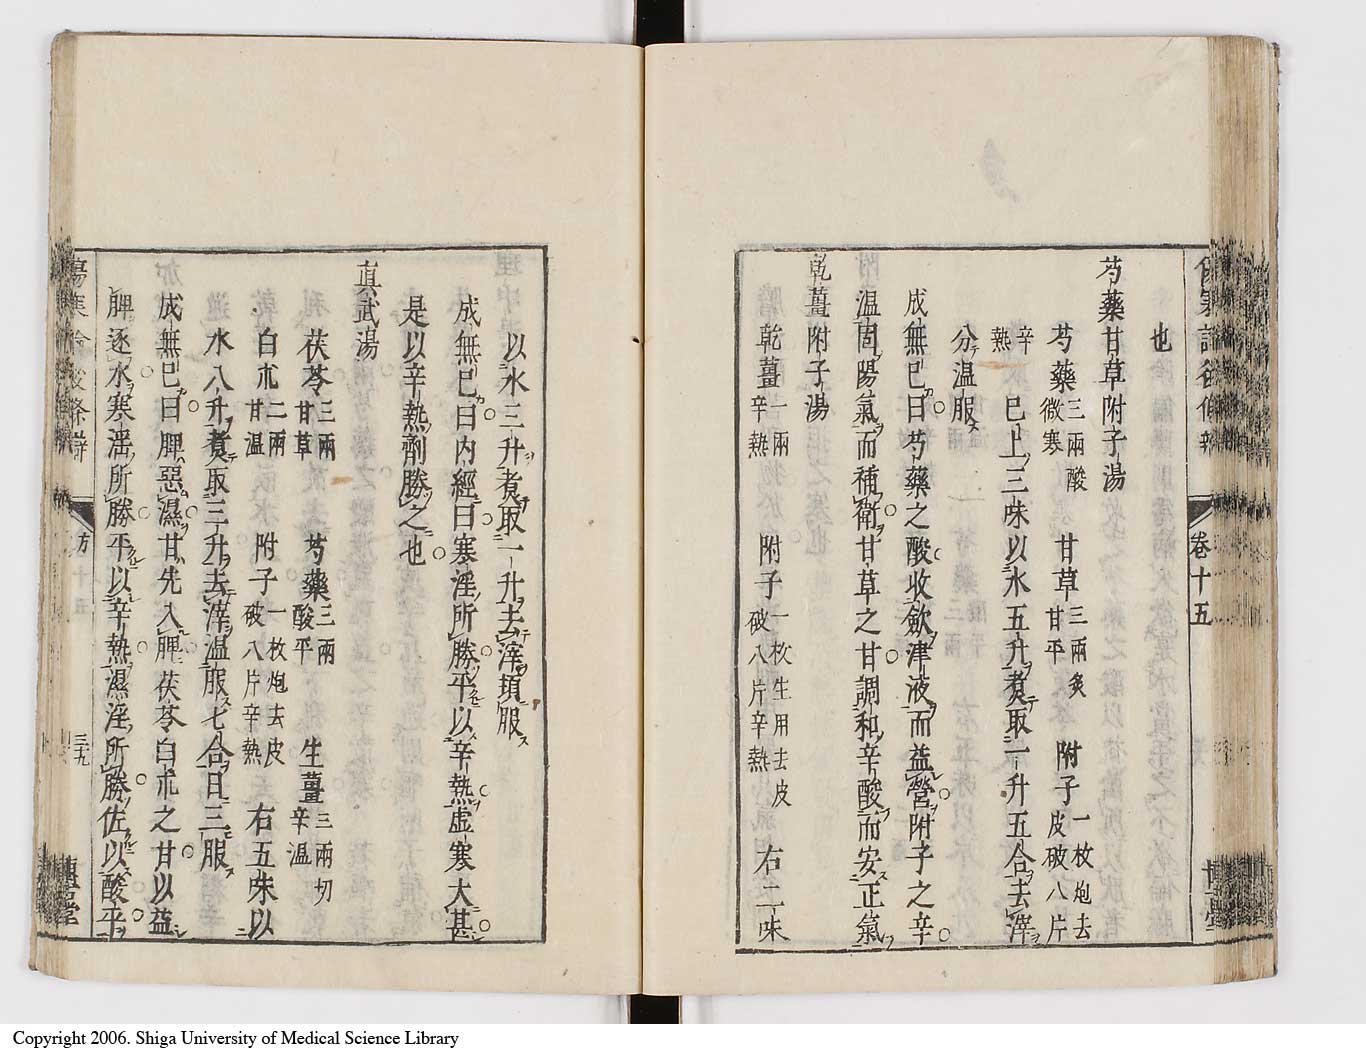 也
芍藥甘草附子湯
芍藥三兩酸微寒 甘草三兩炙甘平 附子一枚炮去皮破八片
辛熱 已上三味以水五升煮取一升五合去滓
分温服
成無已曰芍藥之酸收歛津液而益營附子之辛
温固陽氣而補衛甘草之甘調和辛酸而安正氣
乾薑附子湯
乾薑一兩辛熱 附子一枚生用去皮破八片辛熱 右二味
卷十五
以水三升煮取一升去滓頓服
成無已曰内經曰寒淫所勝平以辛熱虚寒大甚
是以辛熱劑勝之也
真武湯
茯苓三兩甘草 芍藥三兩酸平 生薑三兩切辛温
白朮二兩甘温 附子一枚炮去皮破八片辛熱 右五味以
水八升煮取三升去滓温服七合日三服
成無已曰脾惡濕甘先入脾茯苓白朮之甘以益
脾逐水寒淫所勝平以辛熱濕淫所勝佐以酸平
方十五
三十九
Copyright 2006. Shiga University of Medical Science Library